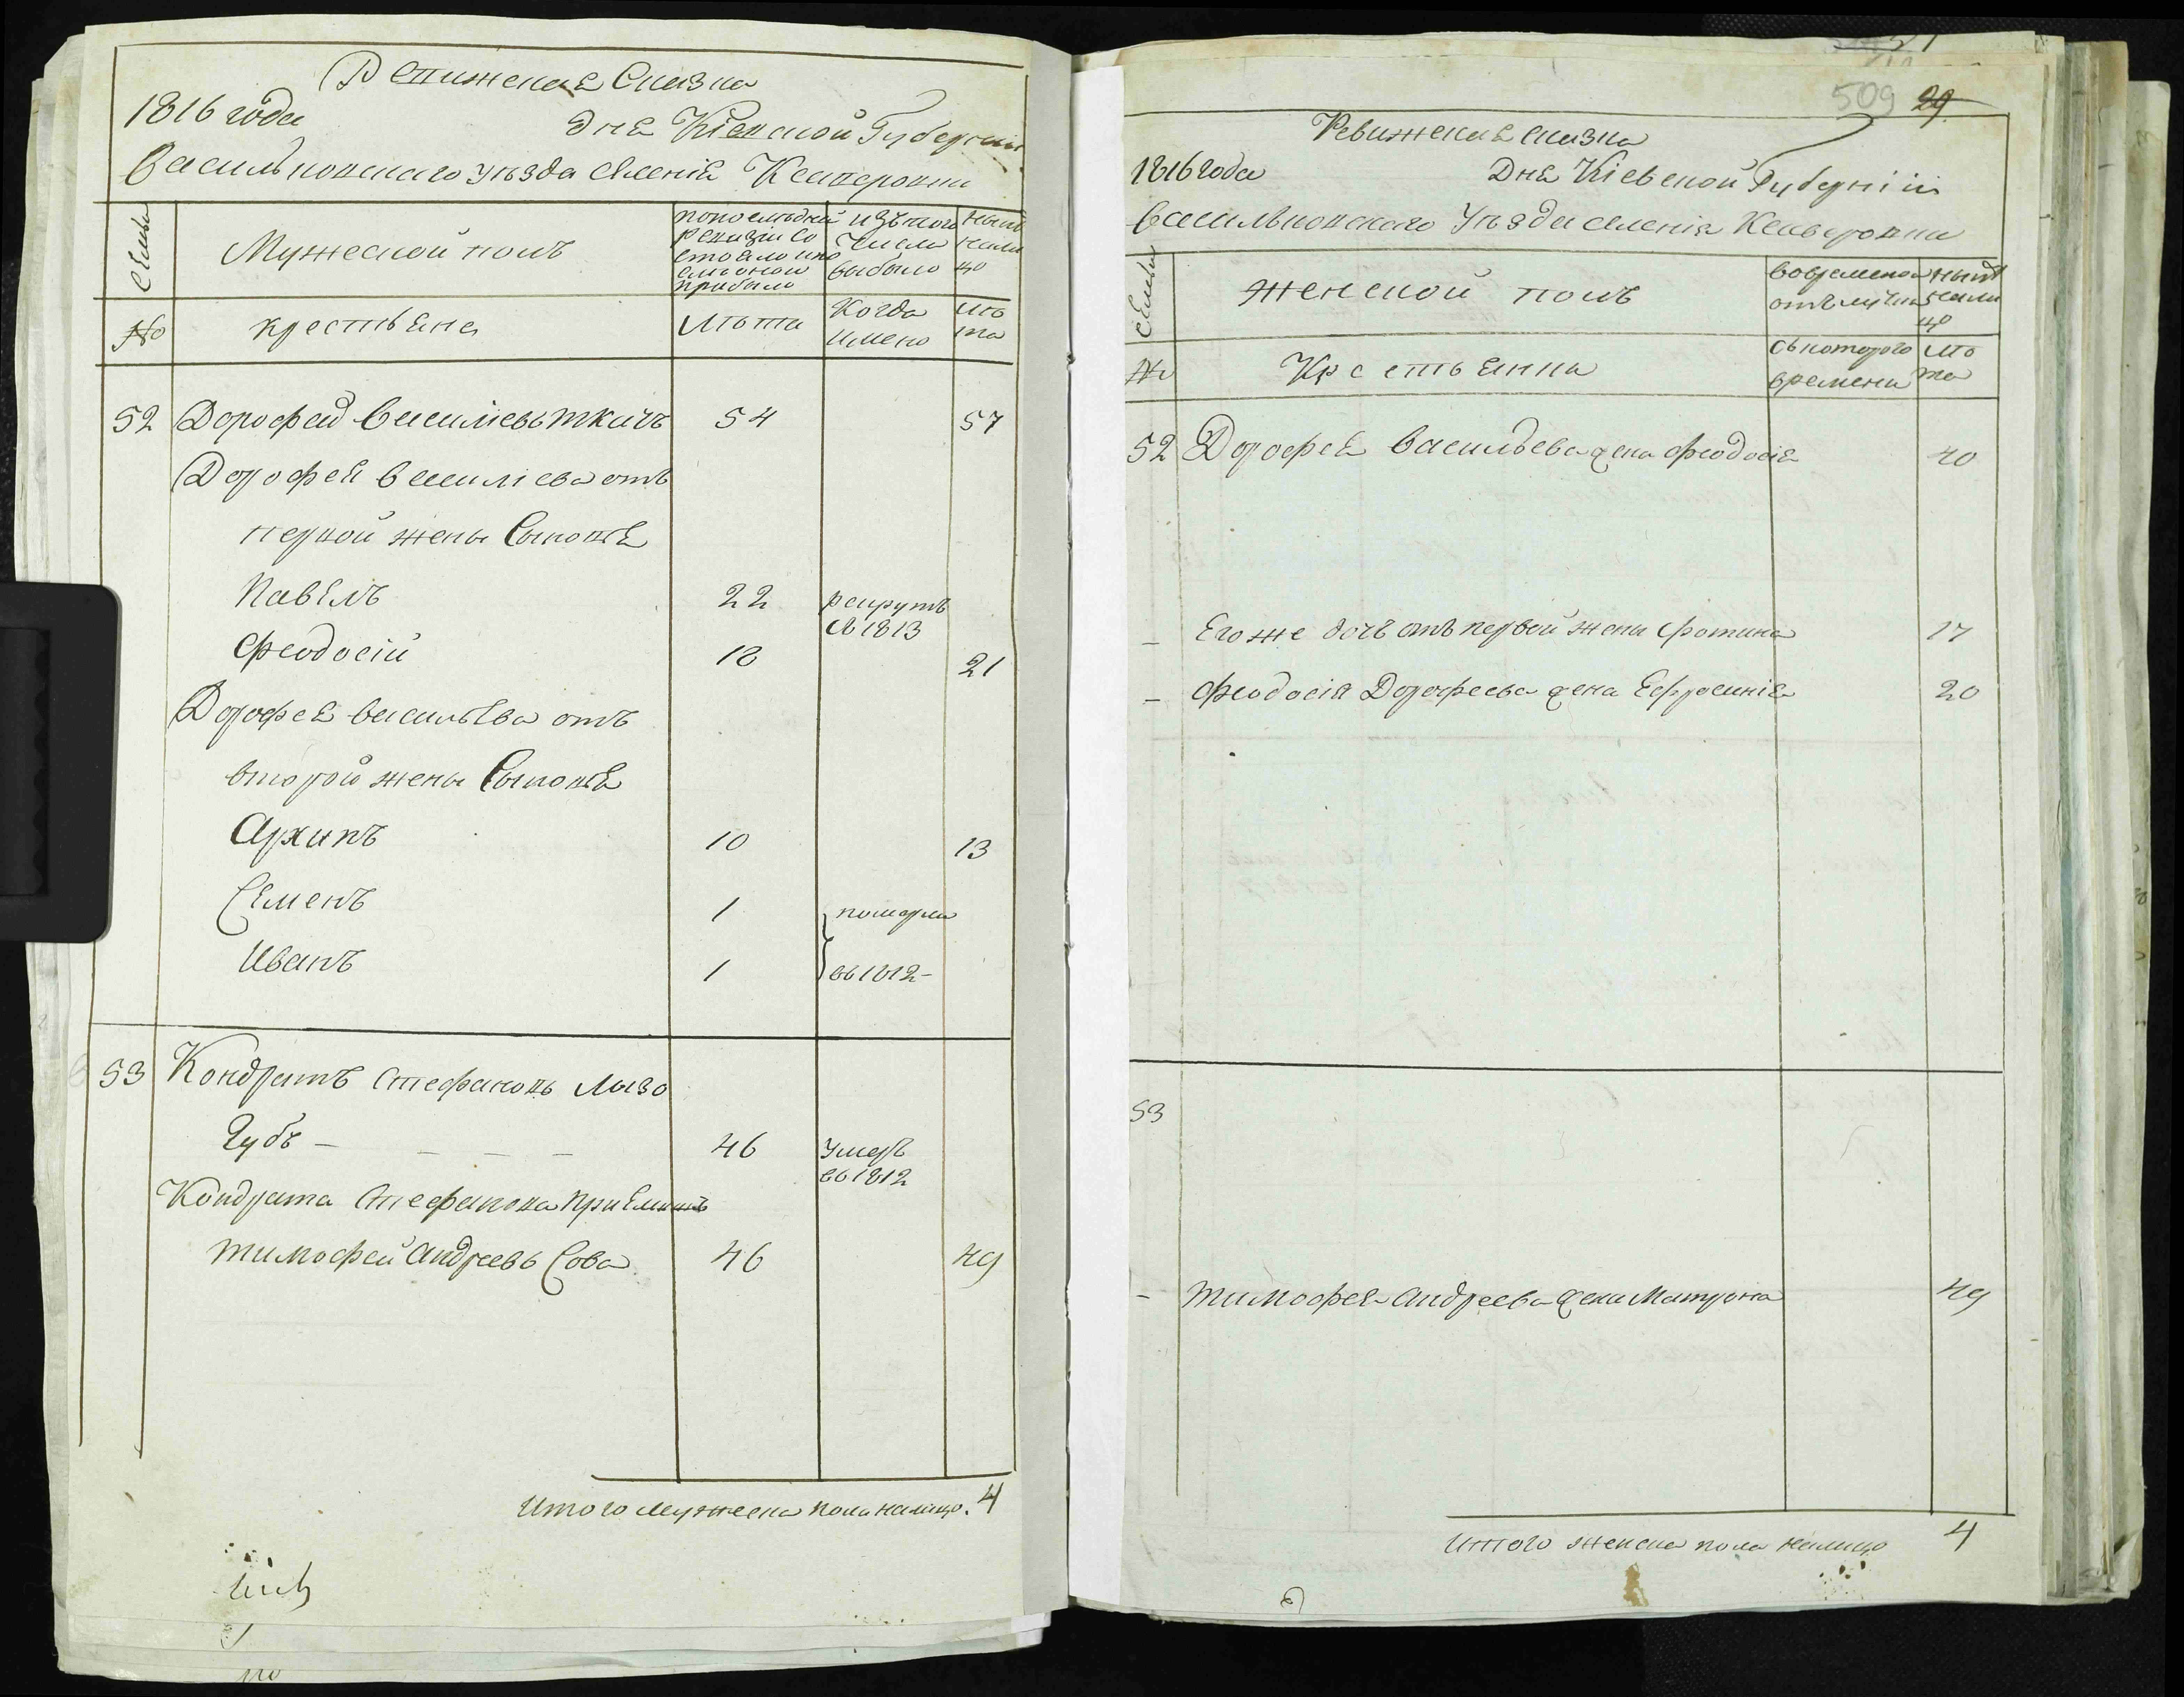 Ревижская Сказка
1816 года дня Кіевской Губерніи
Васильковскаго уѣзда селенія Ксаверовки
Семьи
Мужеской полъ
по последней ревизіи состояло и после оной прибыло
изъ того числа выбыло
ныне на лицо
№
крестьяне
Лѣта
Когда имено
лѣта
52 Дорофей Василіевъ ткачъ 54 57
Дорофея Василіева отъ
первой жены Сыновья
Павелъ 22 рекрутъ
въ 1813
Феодосій 18 21
Дорофея Васильева отъ
второй жены Сыновья
Архипъ 10 13
Семенъ 1 померли
Иванъ 1 въ 1812 -
53 Кондратъ Стефановъ Лизо
Губъ - - - - 46 умеръ
въ 1812
Кондрата Стефанова приемышъ
Тимофей Андреевъ Сова 46 49
Итого мужеска пола налицо. 4
509 29
Ревижская сказка
1816 года Дня Кіевской Губерніи
Васильковского Уѣзда селенія Ксаверовки
Семьи
женской полъ
во временной отълучки
ныне на лицо
№
Крестьянки
съ которого времени
лѣта
52 Дорофея Васильева жена Феодосія 40
- Его же дочь отъ первой жены Фотина 17
- Феодосія Дорофеева жена Ефросинія 20
53
- Тимофея Андреева жена Матрона 49
Итого женска пола налицо 4